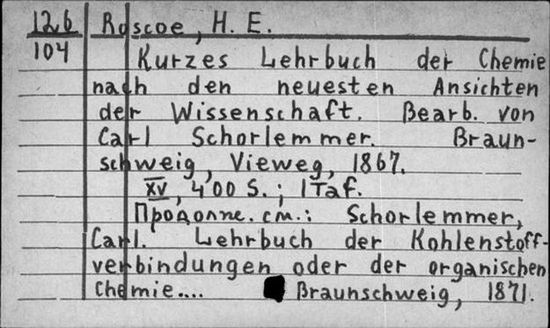 126 Roscoe, H. E.
104 Kurzes Lehrbuch der Chemie
nach den neuesten Ansichten
der Wissenschaft. Bearb. von
Carl Schorlemmer. Braun-
schweig, Vieweg, 1867.
XV, 400 S.; 1 Taf.
Продолж. см.: Schorlemmer,
Carl. Lehrbuch der Kohlenstoff-
verbindungen oder der organischen
Chemie.... Braunschweig, 1871.